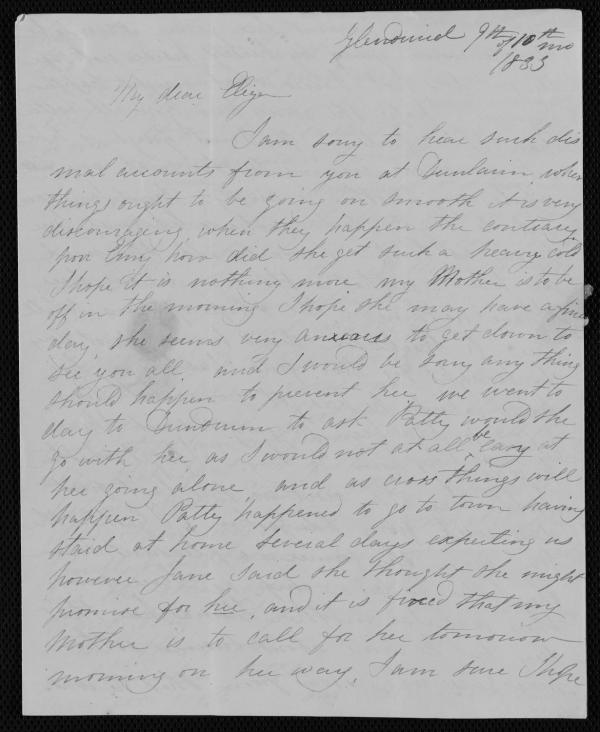 Glendruid 9th
of 10th mo
1833
My dear Eliza
I am sorry to hear such dis
mal accounts from you at Dunlavin, when
things ought to be going on smooth it is very
discouraging when they happen the contrary,
poor how did she get such a heavy cold
I hope it is nothing more my Mother is to be
off in the morning I hope she may have a fine
day, she seems very anxious to get down to
see you all and I would be sorry any thing
should happen to prevent her, we went to
day to Dundrum to ask Patty would she
go with her as I would not at all be easy at
her going alone and as cross things will
happen Patty happened to go to town having
staid at home several days expecting us
however Jane said she thought she might
promise for her, and it is fixed that my
Mother is to call for her tomorrow
morning on her way, I am sure I hope